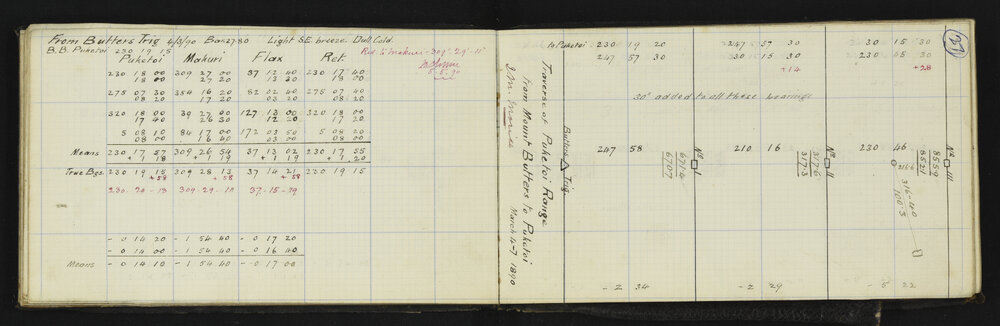 From Butters Trig 4/3/90 Bar 27.80 Light S.E. breeze Dull Cold.
B.B. Puketoi 230 19 15
Red to Makuri - 309° 29' 11"
5.5.90
Puketoi Makuri Flax Ret.
230 18 00 309 27 00 37 12 40 230 17 40
18 00 27 20 13 30 18 00
275 07 30 354 16 20 82 02 40 275 07 40
08 20 17 20 03 20 08 20
320 18 00 39 27 00 127 13 00 320 18 00
17 40 26 30 12 20 17 20
5 08 10 84 17 00 172 03 50 5 08 20
08 00 16 40 03 00 08 00
Means 230 17 57 309 26 54 37 13 02 230 17 55
+ 1 18 + 1 19 + 1 19 + 1 20
True Bgs. 230 19 15 309 28 13 37 14 21 230 19 15
+58 +58 +58
230-20-13 309-29-11 37-15-19
- 0 14 20 - 1 54 40 - 0 17 20
- 0 14 00 - 1 54 40 - 0 16 40
Means - 0 14 10 - 1 54 40 - 0 17 00
Traverse of Puketoi Range
from Mount Butters to Puketoi
March 4-7 1890
21
to Puketoi 230 19 20 247 57 30 230 15 30
247 57 30 230 15 30 230 45 30
+14 +28
30' added to all these bearings
Butters Trig.
247 58 210 16 230 46
671.0
670.7
No I
317.6
317.3
No II
855.9
852.1
No III
316.6
316.40
100.3
- 2 34 - 2 29 - 5 22